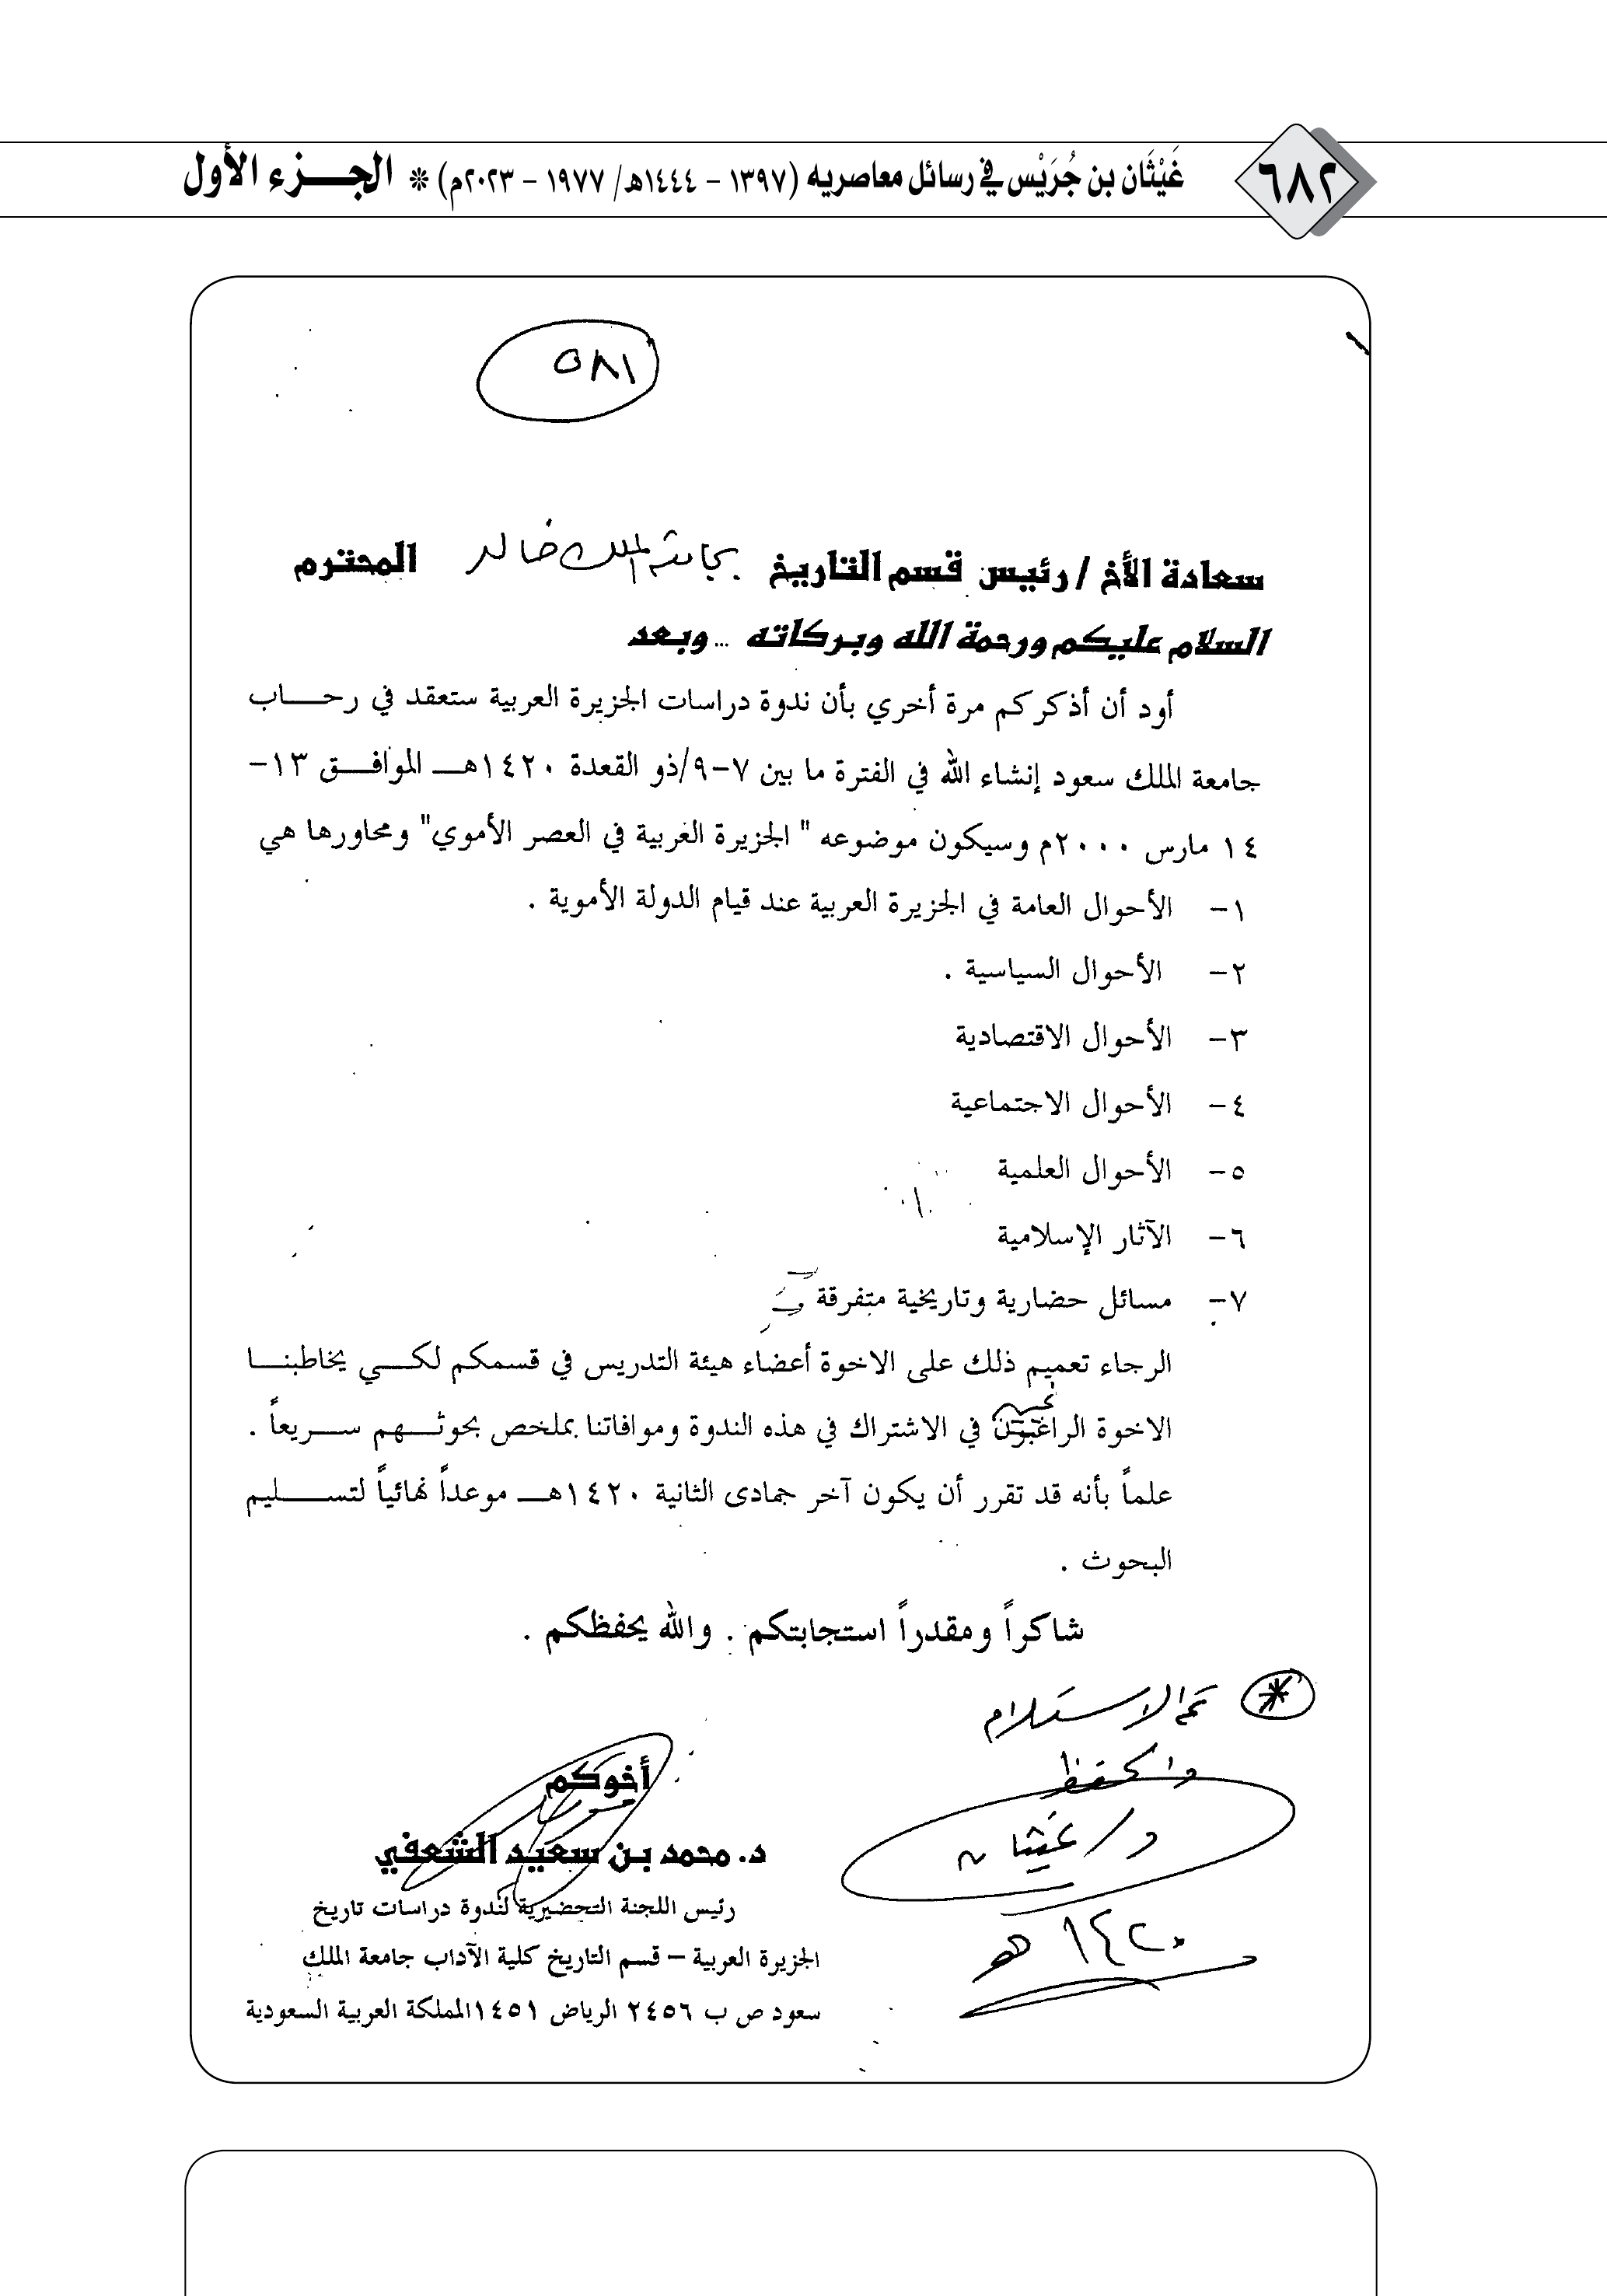 ٦٨٢
غَيْثَان بن جُرَيْس في رسائل معاصريه (١٣٩٧ - ١٤٤٤هـ/ ١٩٧٧ - ٢٠٢٣م) * الجـــزء الأول
٥٨١
سعادة الأخ / رئيس قسم التاريخ بجامعة الملك خالد المحترم
السلام عليكم ورحمة الله وبركاته ... وبعد
أود أن أذكركم مرة أخري بأن ندوة دراسات الجزيرة العربية ستعقد في رحـــاب
جامعة الملك سعود إنشاء الله في الفترة ما بين ٧-٩/ذو القعدة ١٤٢٠هـــ الموافـــق ١٣-
١٤ مارس ٢٠٠٠م وسيكون موضوعه " الجزيرة العربية في العصر الأموي" ومحاورها هي
١- الأحوال العامة في الجزيرة العربية عند قيام الدولة الأموية .
٢- الأحوال السياسية .
٣- الأحوال الاقتصادية
٤- الأحوال الاجتماعية
٥- الأحوال العلمية
٦- الآثار الإسلامية
٧- مسائل حضارية وتاريخية متفرقة
الرجاء تعميم ذلك على الاخوة أعضاء هيئة التدريس في قسمكم لكـــي يخاطبنـــا
الاخوة الراغبون في الاشتراك في هذه الندوة وموافاتنا بملخص بحوثـــهم ســـريعاً .
علماً بأنه قد تقرر أن يكون آخر جمادى الثانية ١٤٢٠هـــ موعداً نهائياً لتســـليم
البحوث .
شاكراً ومقدراً استجابتكم . والله يحفظكم .
* تم الاستلام
والحفظ
د/ غيثان
١٤٢٠هـ
أخوكم
د. محمد بن سعيد الشعفي
رئيس اللجنة التحضيرية لندوة دراسات تاريخ
الجزيرة العربية – قسم التاريخ كلية الآداب جامعة الملك
سعود ص ب ٢٤٥٦ الرياض ١٤٥١المملكة العربية السعودية